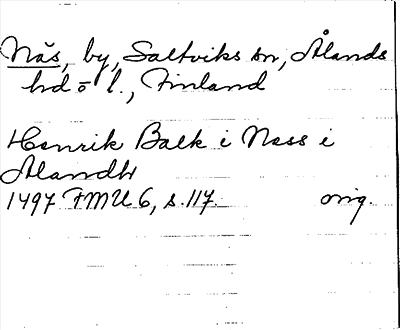 Näs, by, Saltviks sn, Ålands
hd o l., Finland
Henrik Balk i Ness i
Ålandh
1497 FMU 6, s. 117. orig.